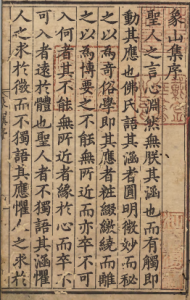 象山集序
聖人之言心淵然無朕其涵也而有觸即
動其應也佛氏語其涵者圓明微妙而秘
之以為奇俗學即其應者粧綴繳繞而離
之以為博要之不能無所近而亦卒不可
入何者其不能無所近者緣於心而卒不
可入者遠於體也聖人者不獨語其涵懼
人之求於微而不獨語其應懼人之求於